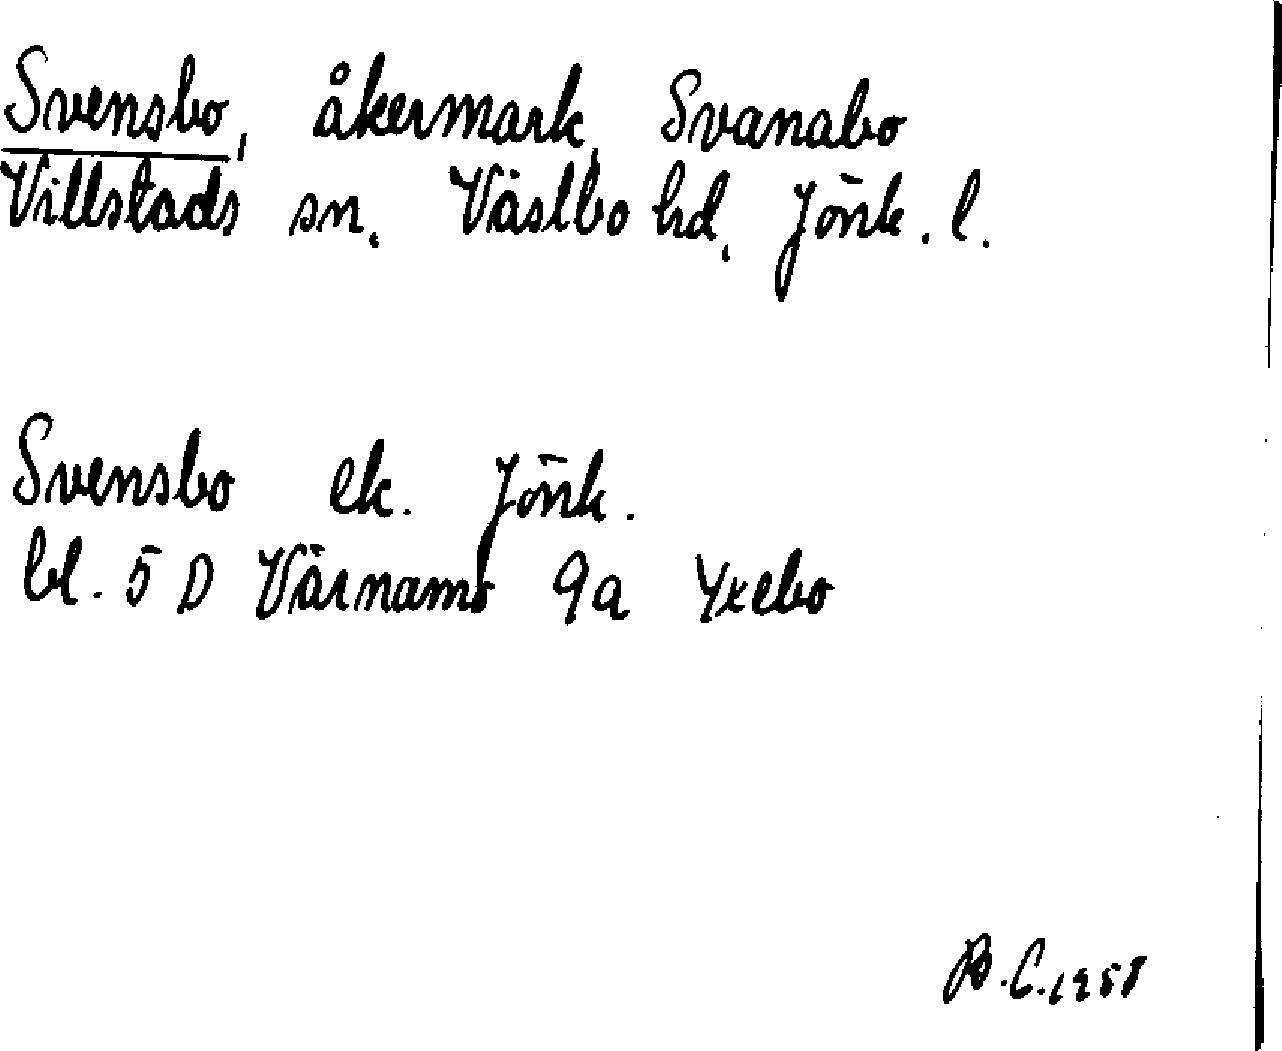 Svensbo, åkermark, Svanabo
Villstads sn. Västbo hd. Jönk. l.
Svensbo ek. Jönk.
bl. 5 D Värnamo 9a Yxebo
B.C. 1958